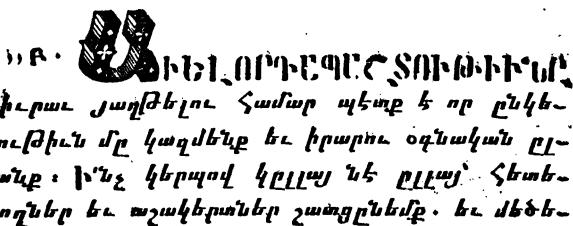 „Բ. ԱՒԵԼՈՐԴԱՊԱՇՏՈՒԹԻՒՆԸ
իւրաւ յաղթելու համար պէտք է որ ընկե-
ութիւն մը կազմենք եւ իրարու օգնական ըլ-
անք։ Ի՞նչ կերպով կըլլայ նէ ըլլայ՝ հետե-
ողներ եւ աշակերտներ շատցընեմք. եւ մեծե-